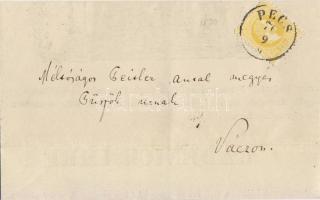 PÉCS
71
9
Méltóságos Peitler antal megyes
Püspök úrnak
Váczon.